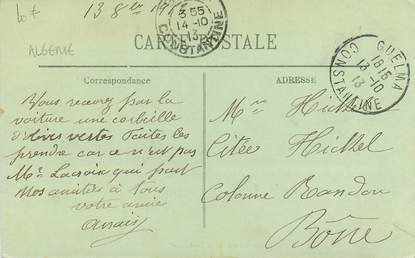 10 €
13 8bre 1913
3 55
14 -10
13
CONSTANTINE
ALGERIE
CARTE POSTALE
GUELMA
18 15
13 -10
13
CONSTANTINE
Correspondance
ADRESSE
Vous recevez par la
voiture une corbeille
d'olives vertes Faites les
prendre car ce n'est pas
Mr Lacroix qui part
Mes amitiés à tous
votre amie
Anaïs
Mme Hickel
Citée Hickel
Colonne Randon
Bône